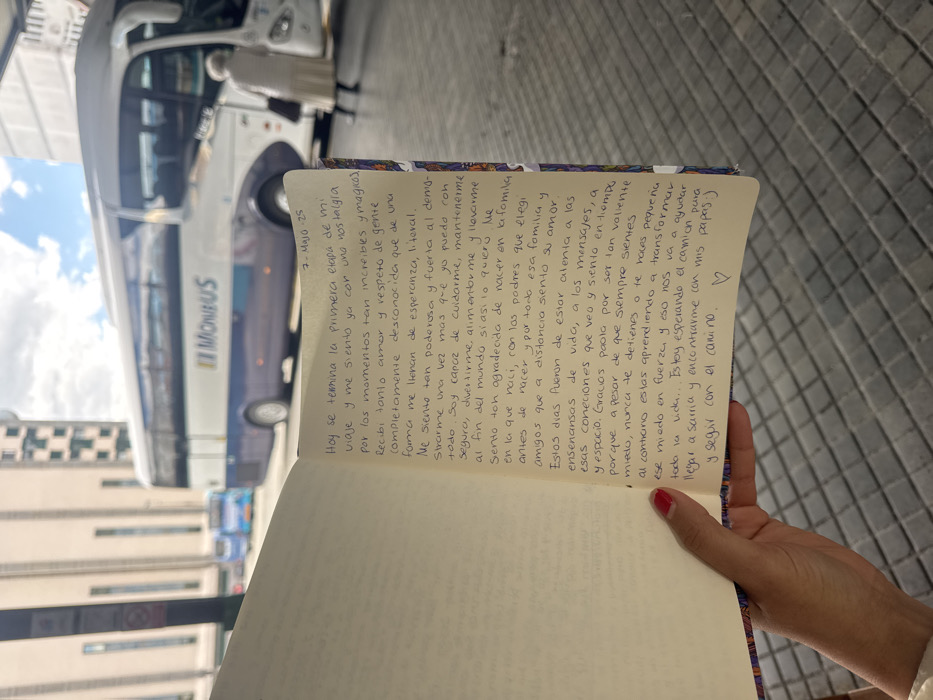 7 - Mayo - 25
Hoy se termina la primera etapa de mi
viaje y me siento ya con una nostalgia
por los momentos tan increibles y magicos
Recibi tanto amor y respeto de gente
completamente desconocida que de una
forma me llenan de esperanza, literal.
Me siento tan poderosa y fuerte al demo-
strarme una vez mas que yo puedo con
todo. Soy capaz de cuidarme, mantenerme
segura, divertirme, alimentarme y llevarme
al fin del mundo si asi lo quero. Me
siento tan agradecida de nacer en la familia
en la que naci, con los padres que elegi
antes de nacer y por toda esa familia y
amigos que a distancia siento su amor
Estos dias fueron de estar atenta a las
enseñansas de vida, a los mensajes, a
esas coneciones que veo y siento en tiempo
y espacio. Gracias paola por ser tan valiente
porque a pesar de que siempre sientes
miedo, nunca te detienes o te haces pequeña
al contrario estas aprendiendo a transformar
ese miedo en fuerza y eso nos va a ayudar
toda la vida... Estoy esperando el camion para
llegar a Sarria y encontrarme con mis papas :)
y seguir con el camino. ♡
MONBUS